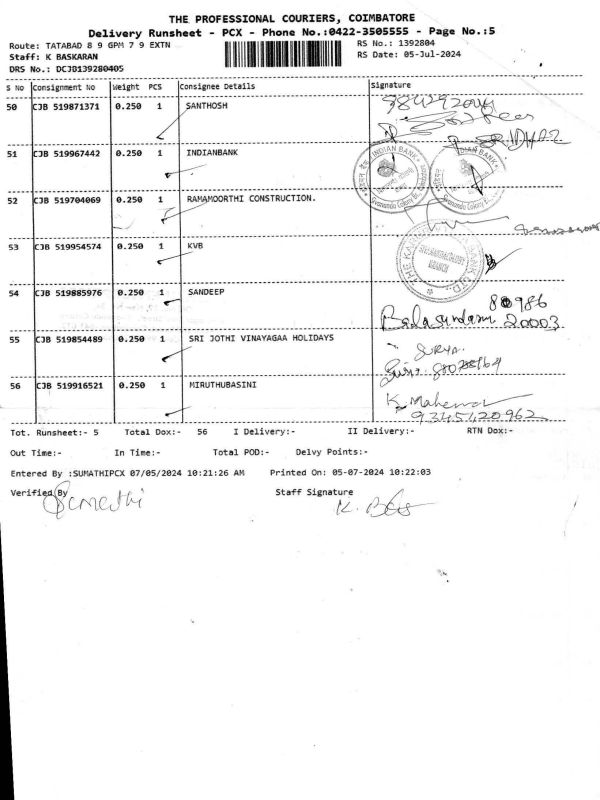 THE PROFESSIONAL COURIERS, COIMBATORE
Delivery Runsheet - PCX - Phone No.:0422-3505555 - Page No.:5
Route: TATABAD 8 9 GPM 7 9 EXTN RS No.: 1392804
Staff: K BASKARAN RS Date: 05-Jul-2024
DRS No.: DCJB139280405
S No Consignment No Weight PCS Consignee Details Signature
50 CJB 519871371 0.250 1 SANTHOSH
51 CJB 519967442 0.250 1 INDIANBANK
INDIAN BANK
INDIAN BANK
52 CJB 519704069 0.250 1 RAMAMOORTHI CONSTRUCTION.
53 CJB 519954574 0.250 1 KVB
54 CJB 519885976 0.250 1 SANDEEP
Balasundaram 20003
55 CJB 519854489 0.250 1 SRI JOTHI VINAYAGAA HOLIDAYS
SURYA.
56 CJB 519916521 0.250 1 MIRUTHUBASINI
K. Mahe
9345120962
Tot. Runsheet:- 5 Total Dox:- 56 I Delivery:- II Delivery:- RTN Dox:-
Out Time:- In Time:- Total POD:- Delvy Points:-
Entered By :SUMATHIPCX 07/05/2024 10:21:26 AM Printed On: 05-07-2024 10:22:03
Verified By Staff Signature
Sumathi K. Bas